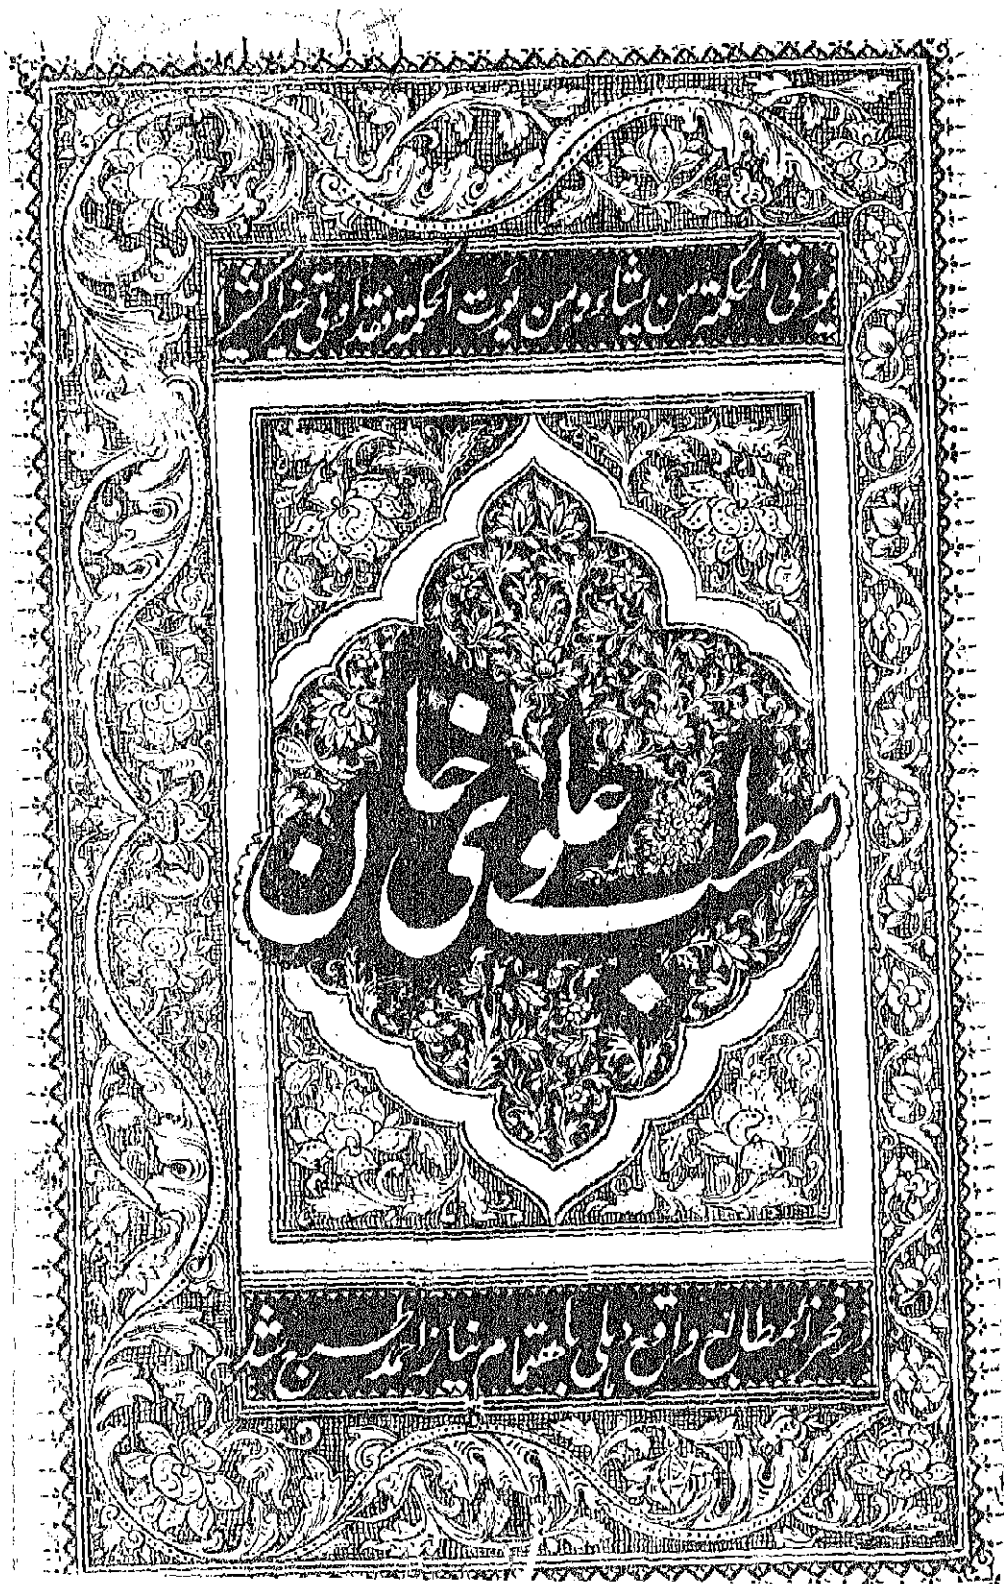 یوتی الحکمة من یشاء و من یوت الحکمة فقد اوتی خیرا کثیرا
مطب علوی خان
در فخر المطابع واقع دہلی باہتمام نیاز احمد طبع شد